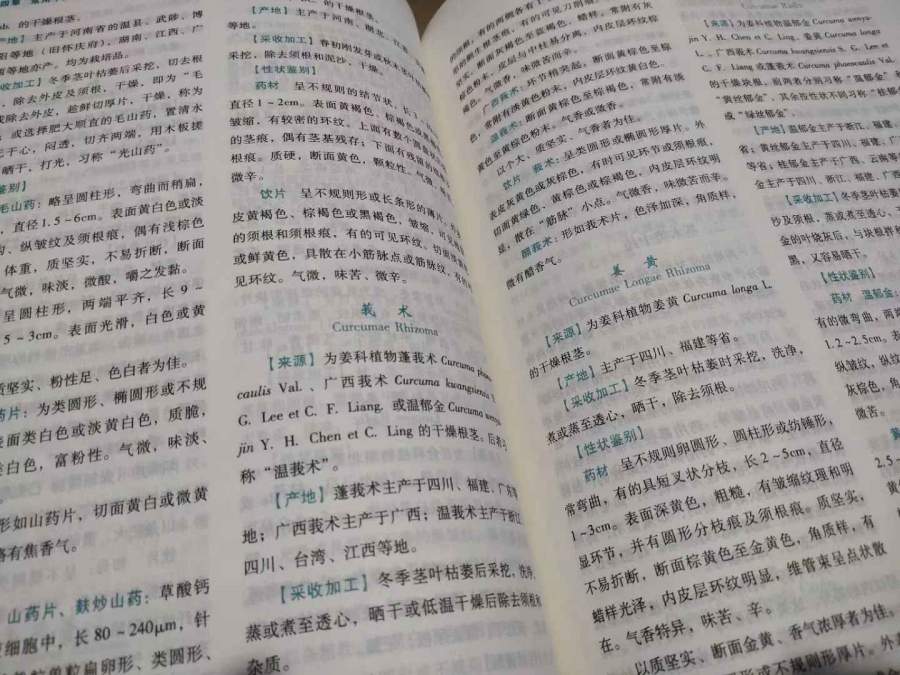 山的干燥根茎。
【产地】主产于河南省的温县、武陟、博
等地(旧怀庆府)、湖南、江西、广
等地亦产,均为栽培品。
采收加工】冬季茎叶枯萎后采挖,切去根
,除去外皮及须根,干燥,即为“毛
或除去外皮,趁鲜切厚片,干燥,称为
。或选择肥大顺直的毛山药,置清水
无干心,闷透,切齐两端,用木板搓
晒干,打光,习称“光山药”。
鉴别】
毛山药:略呈圆柱形,弯曲而稍扁,
,直径1.5~6cm。表面黄白色或淡
沟、纵皱纹及须根痕,偶有浅棕色
。体重,质坚实,不易折断,断面
气微,味淡,微酸,嚼之发黏。
呈圆柱形,两端平齐,长9~
5~3cm。表面光滑,白色或黄
质坚实、粉性足、色白者为佳。
药片:为类圆形、椭圆形或不规
表面类白色或淡黄白色,质脆,
类白色,富粉性。气微,味淡、
形如山药片,切面黄白或微黄
略有焦香气。
山药片、麸炒山药:草酸钙
细胞中,长80~240μm,针
单粒扁卵形、类圆形、
的干燥根茎。
【产地】主产于河南、湖北、江
【采收加工】春初刚发芽或秋末茎
采挖,除去须根和泥沙,干燥。
【性状鉴别】
药材 呈不规则的结节状,长3
直径1~2cm。表面黄褐色、棕褐色
皱缩,有较密的环纹。上面有数个圆
的茎痕,偶有茎基残存;下面有残留的
根痕。质硬,断面黄色,颗粒性。气微,味
微辛。
饮片 呈不规则形或长条形的薄片。外表
皮黄褐色、棕褐色或黑褐色,皱缩,可见
的须根和须根痕,有的可见环纹。切面
或鲜黄色,具散在小筋脉点或筋脉纹,有的
见环纹。气微,味苦,微辛。
莪 术
Curcumae Rhizoma
【来源】为姜科植物蓬莪术Curcuma phaeo-
caulis Val.、广西莪术Curcuma kwangsiensis S.
G. Lee et C. F. Liang. 或温郁金Curcuma wenyu-
jin Y. H. Chen et C. Ling 的干燥根茎。后者习
称“温莪术”。
【产地】蓬莪术主产于四川、福建、广东等
地;广西莪术主产于广西;温莪术主产于浙江、
四川、台湾、江西等地。
【采收加工】冬季茎叶枯萎后采挖,洗净,
蒸或煮至透心,晒干或低温干燥后除去须根和
杂质。
质坚实,断面灰褐色至蓝褐色,蜡样,常附有灰
棕色粉末,皮层与中柱易分离,内皮层环纹棕
色。气微香,味微苦而辛。
广西莪术:环节稍突起,断面黄棕色至棕
色,常附有淡黄色粉末,内皮层环纹黄白色。
温莪术:断面黄棕色至棕褐色,常附有淡
黄色至黄棕色粉末。气香或微香。
以个大、质坚实、气香者为佳。
饮片 莪术:呈类圆形或椭圆形厚片。外
表皮灰黄色或灰棕色,有时可见环节或须根痕,
切面黄绿色、黄棕色或棕褐色,内皮层环纹明
显,散在“筋脉”小点。气微香,味微苦而辛。
醋莪术:形如莪术片,色泽加深,角质样,
微有醋香气。
姜 黄
Curcumae Longae Rhizoma
【来源】为姜科植物姜黄Curcuma longa L.
的干燥根茎。
【产地】主产于四川、福建等省。
【采收加工】冬季茎叶枯萎时采挖,洗净,
煮或蒸至透心,晒干,除去须根。
【性状鉴别】
药材 呈不规则卵圆形、圆柱形或纺锤形,
常弯曲,有的具短叉状分枝,长2~5cm,直径
1~3cm。表面深黄色,粗糙,有皱缩纹理和明
显环节,并有圆形分枝痕及须根痕。质坚实,
不易折断,断面棕黄色至金黄色,角质样,有
蜡样光泽,内皮层环纹明显,维管束呈点状散
在。气香特异,味苦、辛。
以质坚实、断面金黄、香气浓厚者为佳。
形或不规则形厚片。外表
Curcumae Radix
【来源】为姜科植物温郁金Curcuma wenyu-
jin Y. H. Chen et C. Ling、姜黄 Curcuma longa
L.、广西莪术Curcuma kwangsiensis S. G. Lee et
C. F. Liang 或蓬莪术Curcuma phaeocaulis Val.
的干燥块根。前两者分别习称“温郁金”和
“黄丝郁金”,其余按性状不同习称“桂郁金”
或“绿丝郁金”。
【产地】温郁金主产于浙江、福建、
等省;黄丝郁金主产于四川、福建、广
等地;桂郁金主产于广西、云南等
金主产于四川、浙江、福建、广西
【采收加工】冬季茎叶枯萎后
沙及须根,蒸或煮至透心,干
金的叶烧灰后,与块根拌和
黑,又容易晒干。
【性状鉴别】
药材 温郁金:
有的微弯曲,两端
1.2~2.5cm。表
纵皱纹,纵纹
灰棕色,角
微苦。
黄
2.5